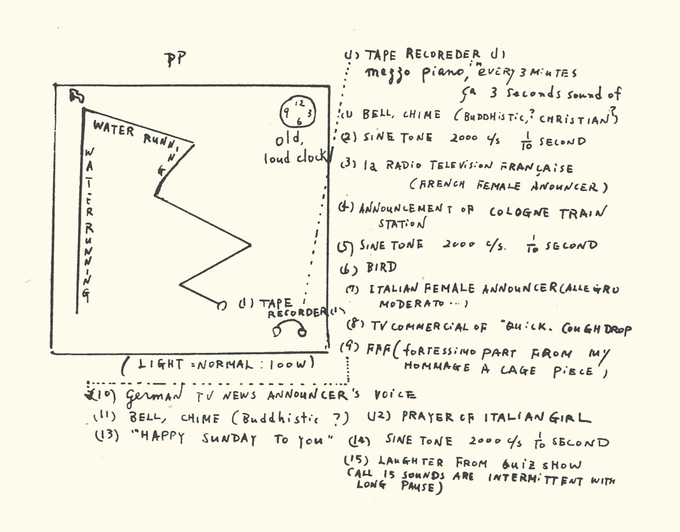 PP
WATER RUNNING
WATER RUNNING
12
9 3
6
old,
loud clock
(1) TAPE
RECORDER (1)
(LIGHT = NORMAL : 100W)
(1) TAPE RECOREDER (1)
mezzo piano, in EVERY 3 MINUTES
ça 3 seconds sound of
(1) BELL, CHIME (BUDDHISTIC,? CHRISTIAN?)
(2) SINE TONE 2000 c/s 1/10 SECOND
(3) la RADIO TELEVISION FRANÇAISE
(FRENCH FEMALE ANOUNCER)
(4) ANNOUNCEMENT OF COLOGNE TRAIN
STATION
(5) SINE TONE 2000 c/s. 1/10 SECOND
(6) BIRD
(7) ITALIAN FEMALE ANNOUNCER (ALLEGRO
MODERATO...)
(8) TV COMMERCIAL OF "QUICK. COUGH DROP
(9) FFF (fORTESSIMO PART FROM MY
HOMMAGE A CAGE PIECE)
(10) German TV NEWS ANNOUNCER'S VOICE
(11) BELL, CHIME (Buddhistic ?) (12) PRAYER OF ITALIAN GIRL
(13) "HAPPY SUNDAY TO YOU" (14) SINE TONE 2000 c/s 1/10 SECOND
(15) LAUGHTER FROM QUIZ SHOW
(ALL 15 SOUNDS ARE INTERMITTENT WITH
LONG PAUSE)